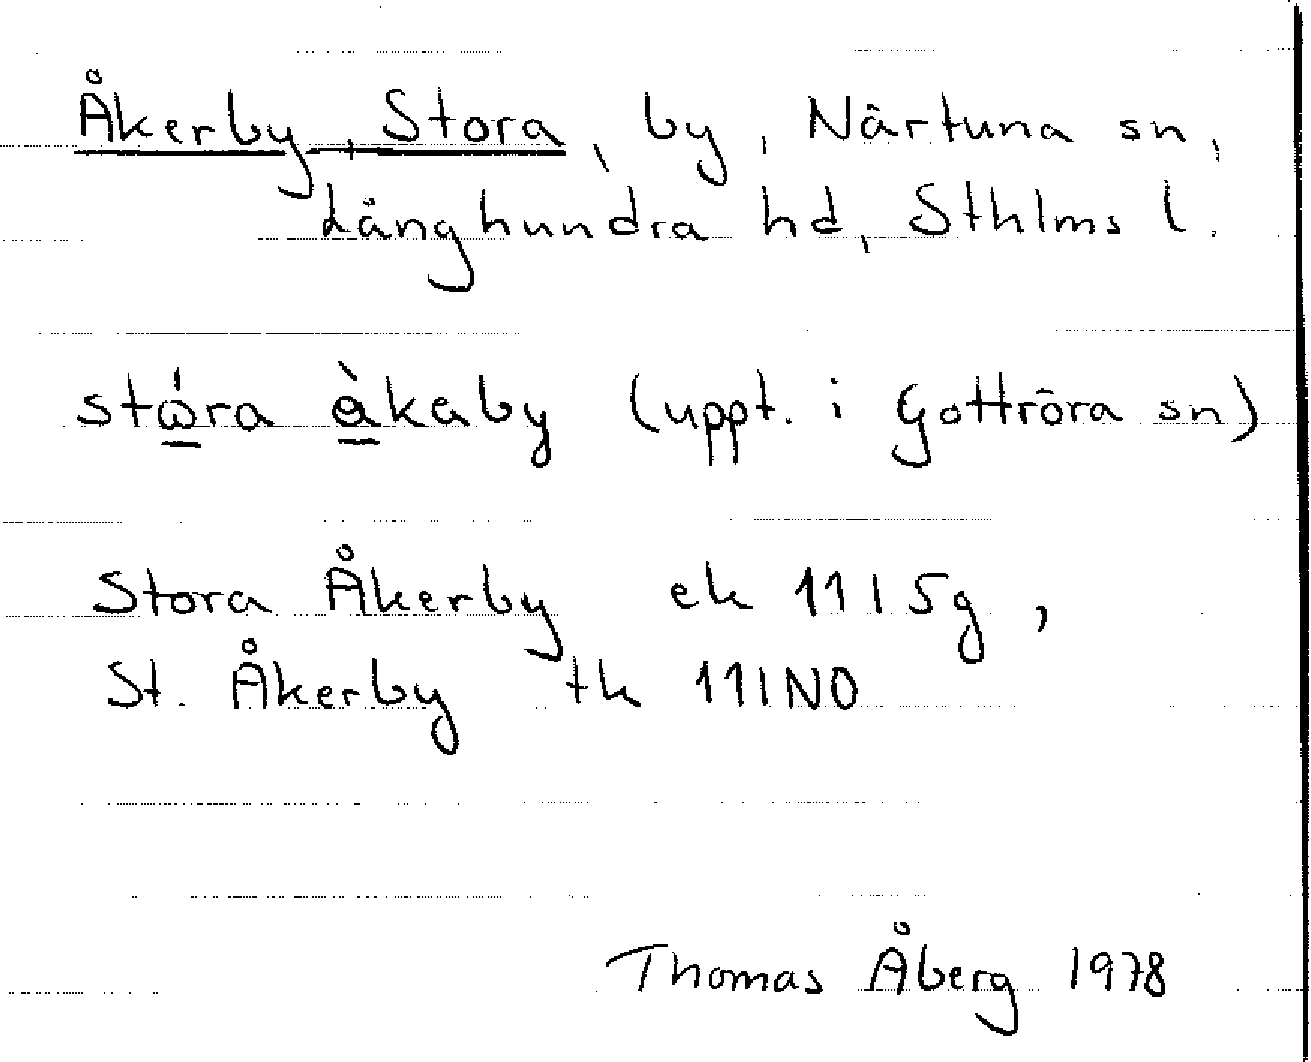 Åkerby, Stora, by, Närtuna sn,
Långhundra hd, Sthlms l.
stώ̲ra å̲̀kaby (uppt. i Gottröra sn)
Stora Åkerby ek 11I5g,
St. Åkerby tk 11INO
Thomas Åberg 1978